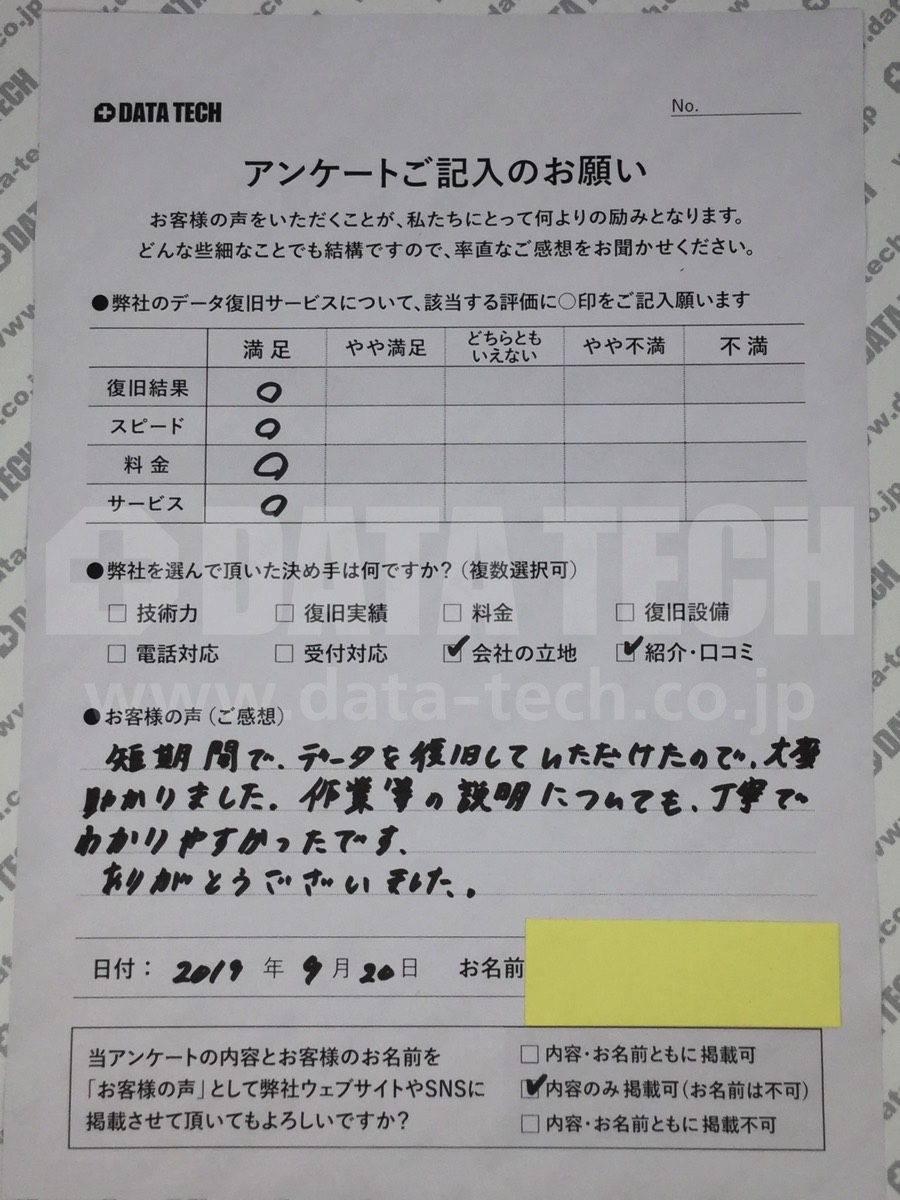 DATA TECH
No.
アンケートご記入のお願い
お客様の声をいただくことが、私たちにとって何よりの励みとなります。
どんな些細なことでも結構ですので、率直なご感想をお聞かせください。
●弊社のデータ復旧サービスについて、該当する評価に○印をご記入願います
満足 やや満足 どちらとも いえない やや不満 不満
復旧結果 ○
スピード ○
料金 ○
サービス ○
DATA TECH
●弊社を選んで頂いた決め手は何ですか？（複数選択可）
□ 技術力 □ 復旧実績 □ 料金 □ 復旧設備
□ 電話対応 □ 受付対応 ☑ 会社の立地 ☑ 紹介・口コミ
www.data-tech.co.jp
●お客様の声（ご感想）
短期間で、データを復旧していただけたので、大変
助かりました。作業等の説明についても、丁寧で
わかりやすかったです。
ありがとうございました。
日付： 2019 年 9 月 20 日 お名前
当アンケートの内容とお客様のお名前を
「お客様の声」として弊社ウェブサイトやSNSに
掲載させて頂いてもよろしいですか？
□ 内容・お名前ともに掲載可
☑ 内容のみ掲載可（お名前は不可）
□ 内容・お名前ともに掲載不可